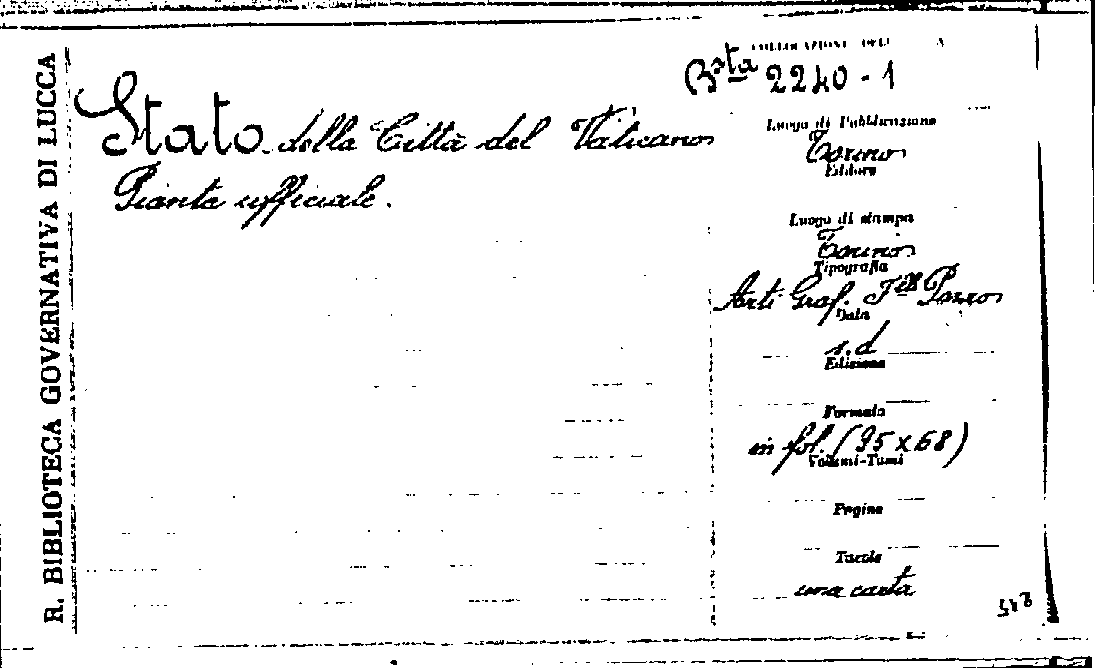 R. BIBLIOTECA GOVERNATIVA DI LUCCA
Stato della Città del Vaticano
Pianta ufficiale.
COLLOCAZIONE
Bsta 2240-1
Luogo di Pubblicazione
Torino
Editore
Luogo di stampa
Torino
Tipografia
Arti Graf. Flli Pozzo
Data
s.d
Edizione
Formato
in fol. (95 x 68)
Volumi-Tomi
Pagine
Tavole
una carta